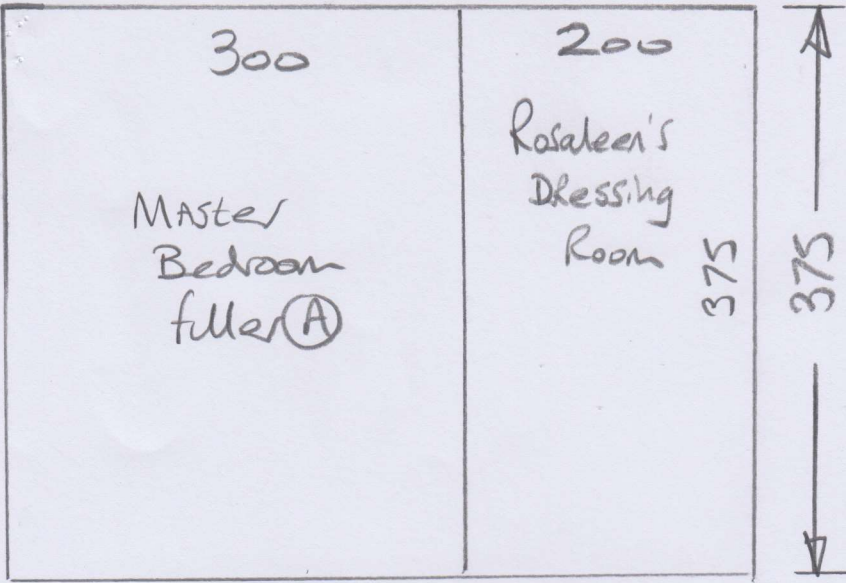 300
Master
Bedroom
filler A
200
Rosaleen's
Dressing
Room
375
375